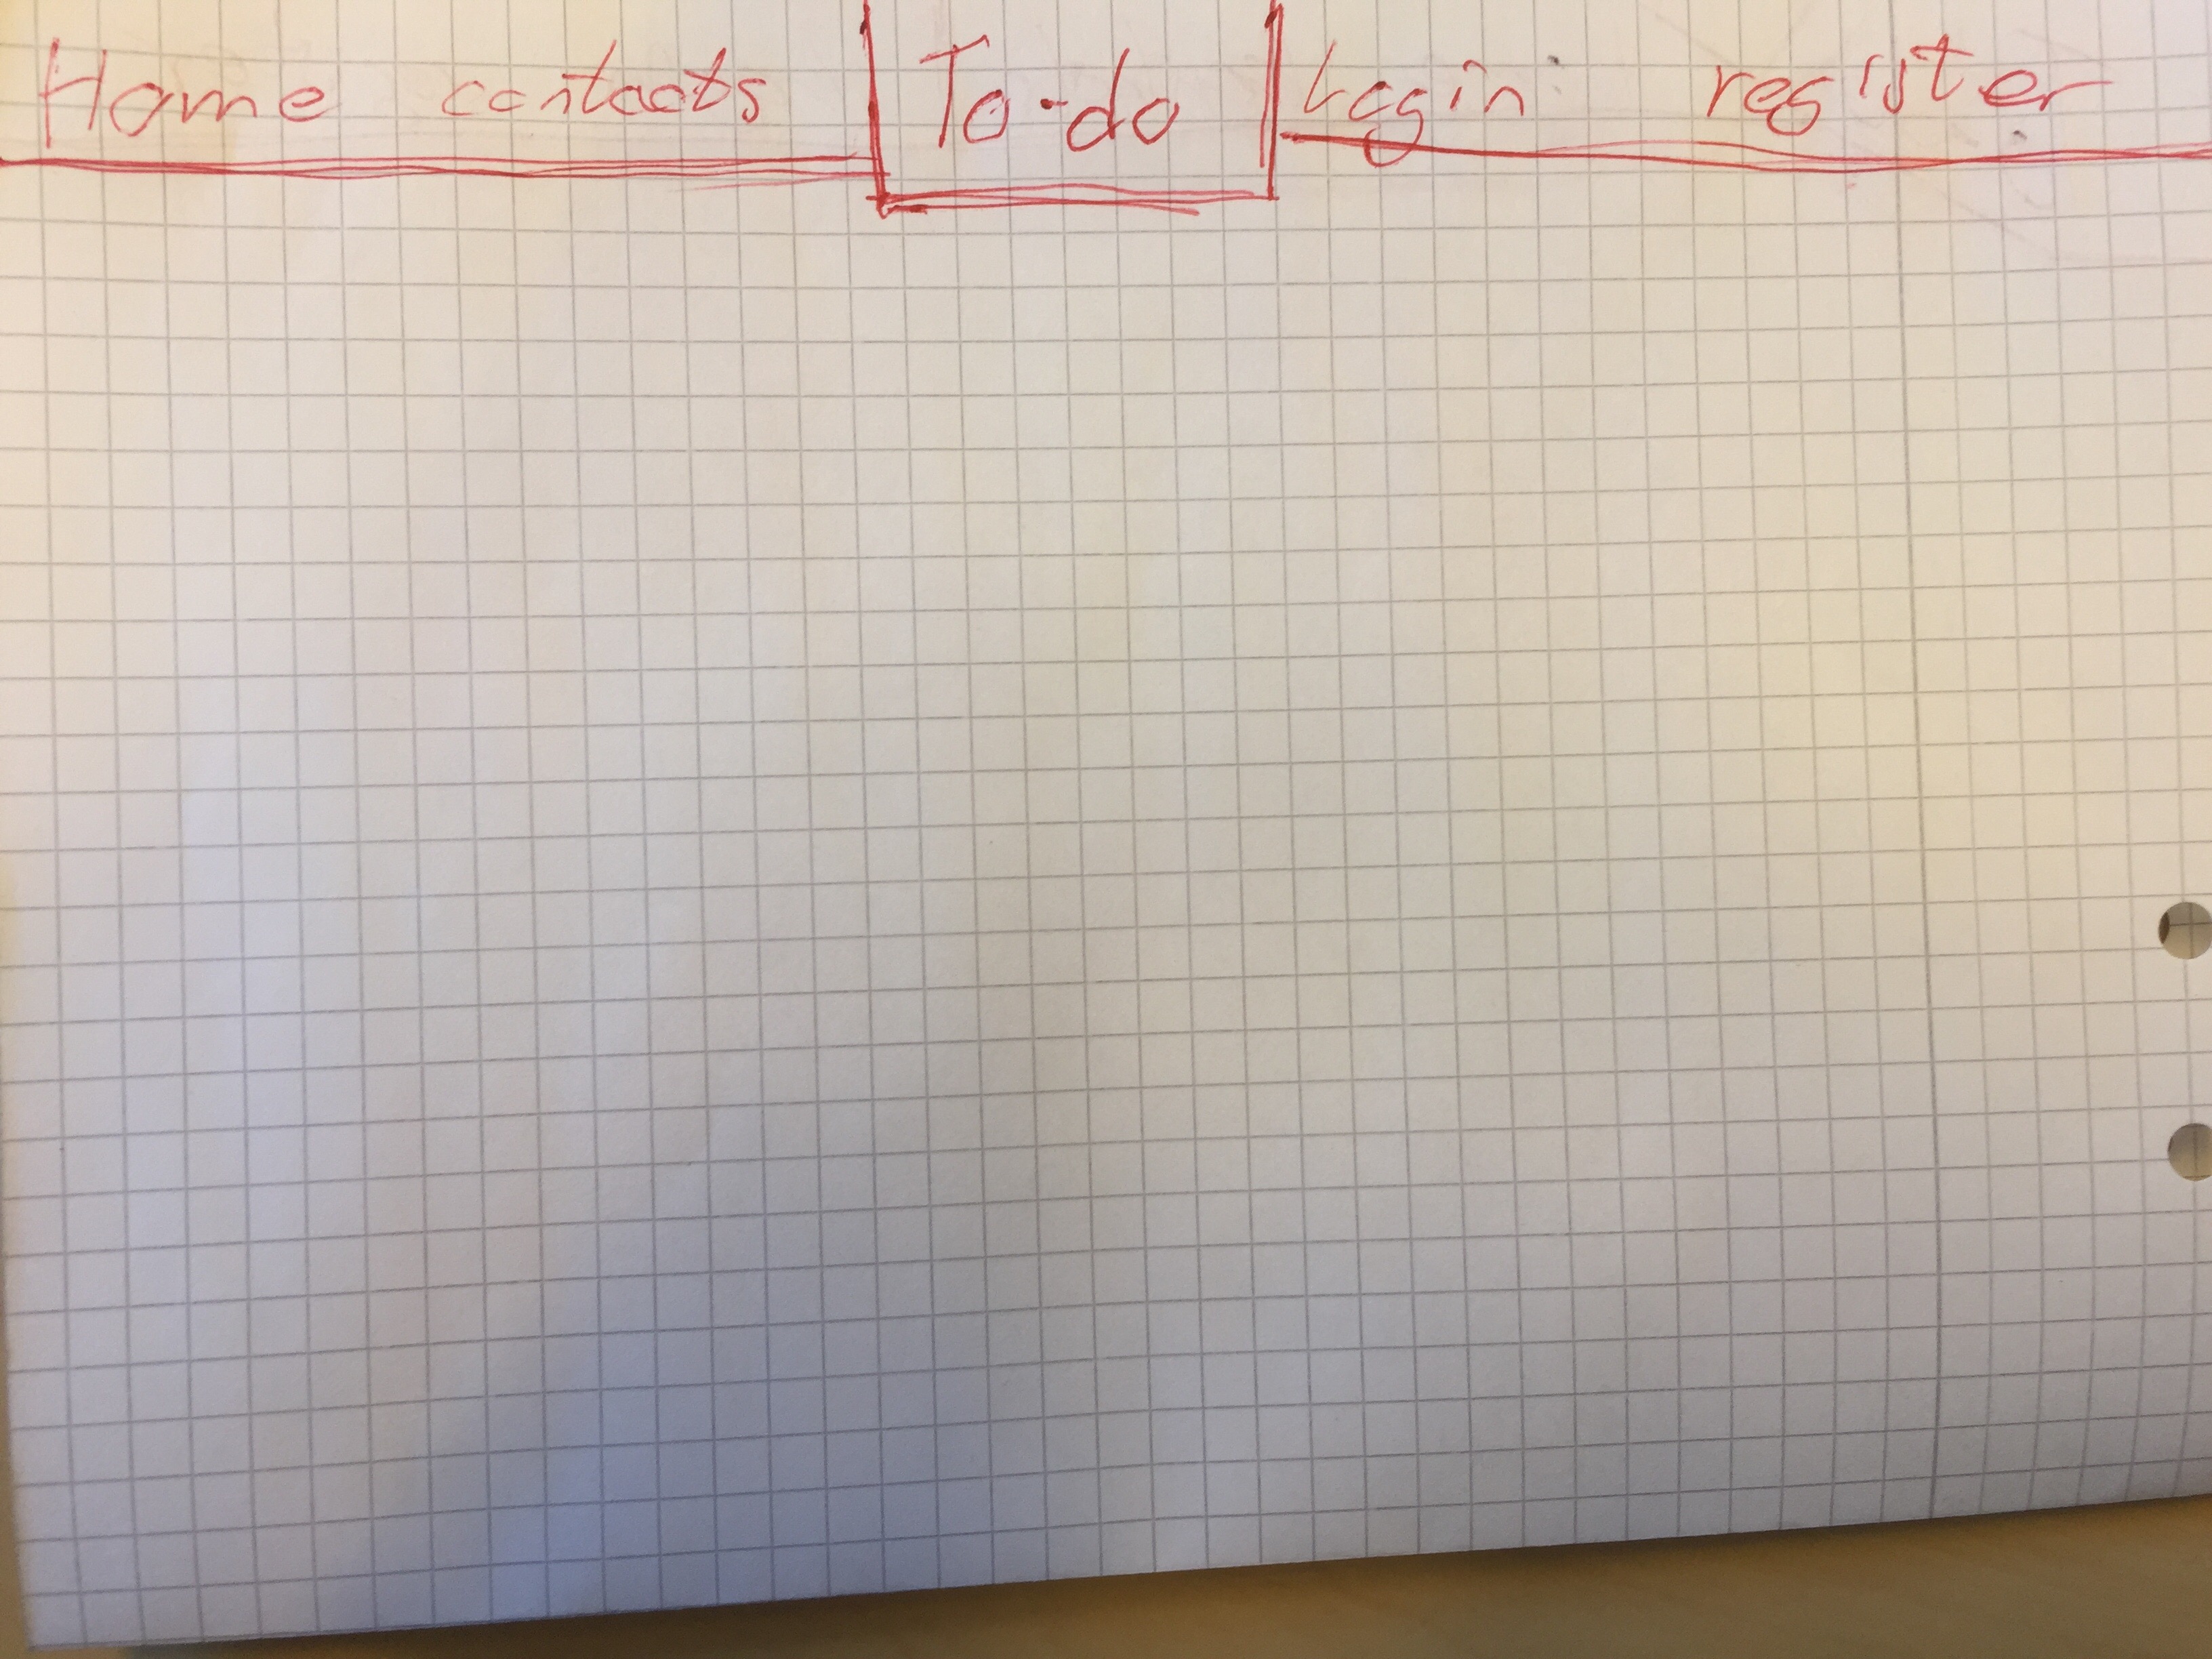 Home contacts To-do Login register